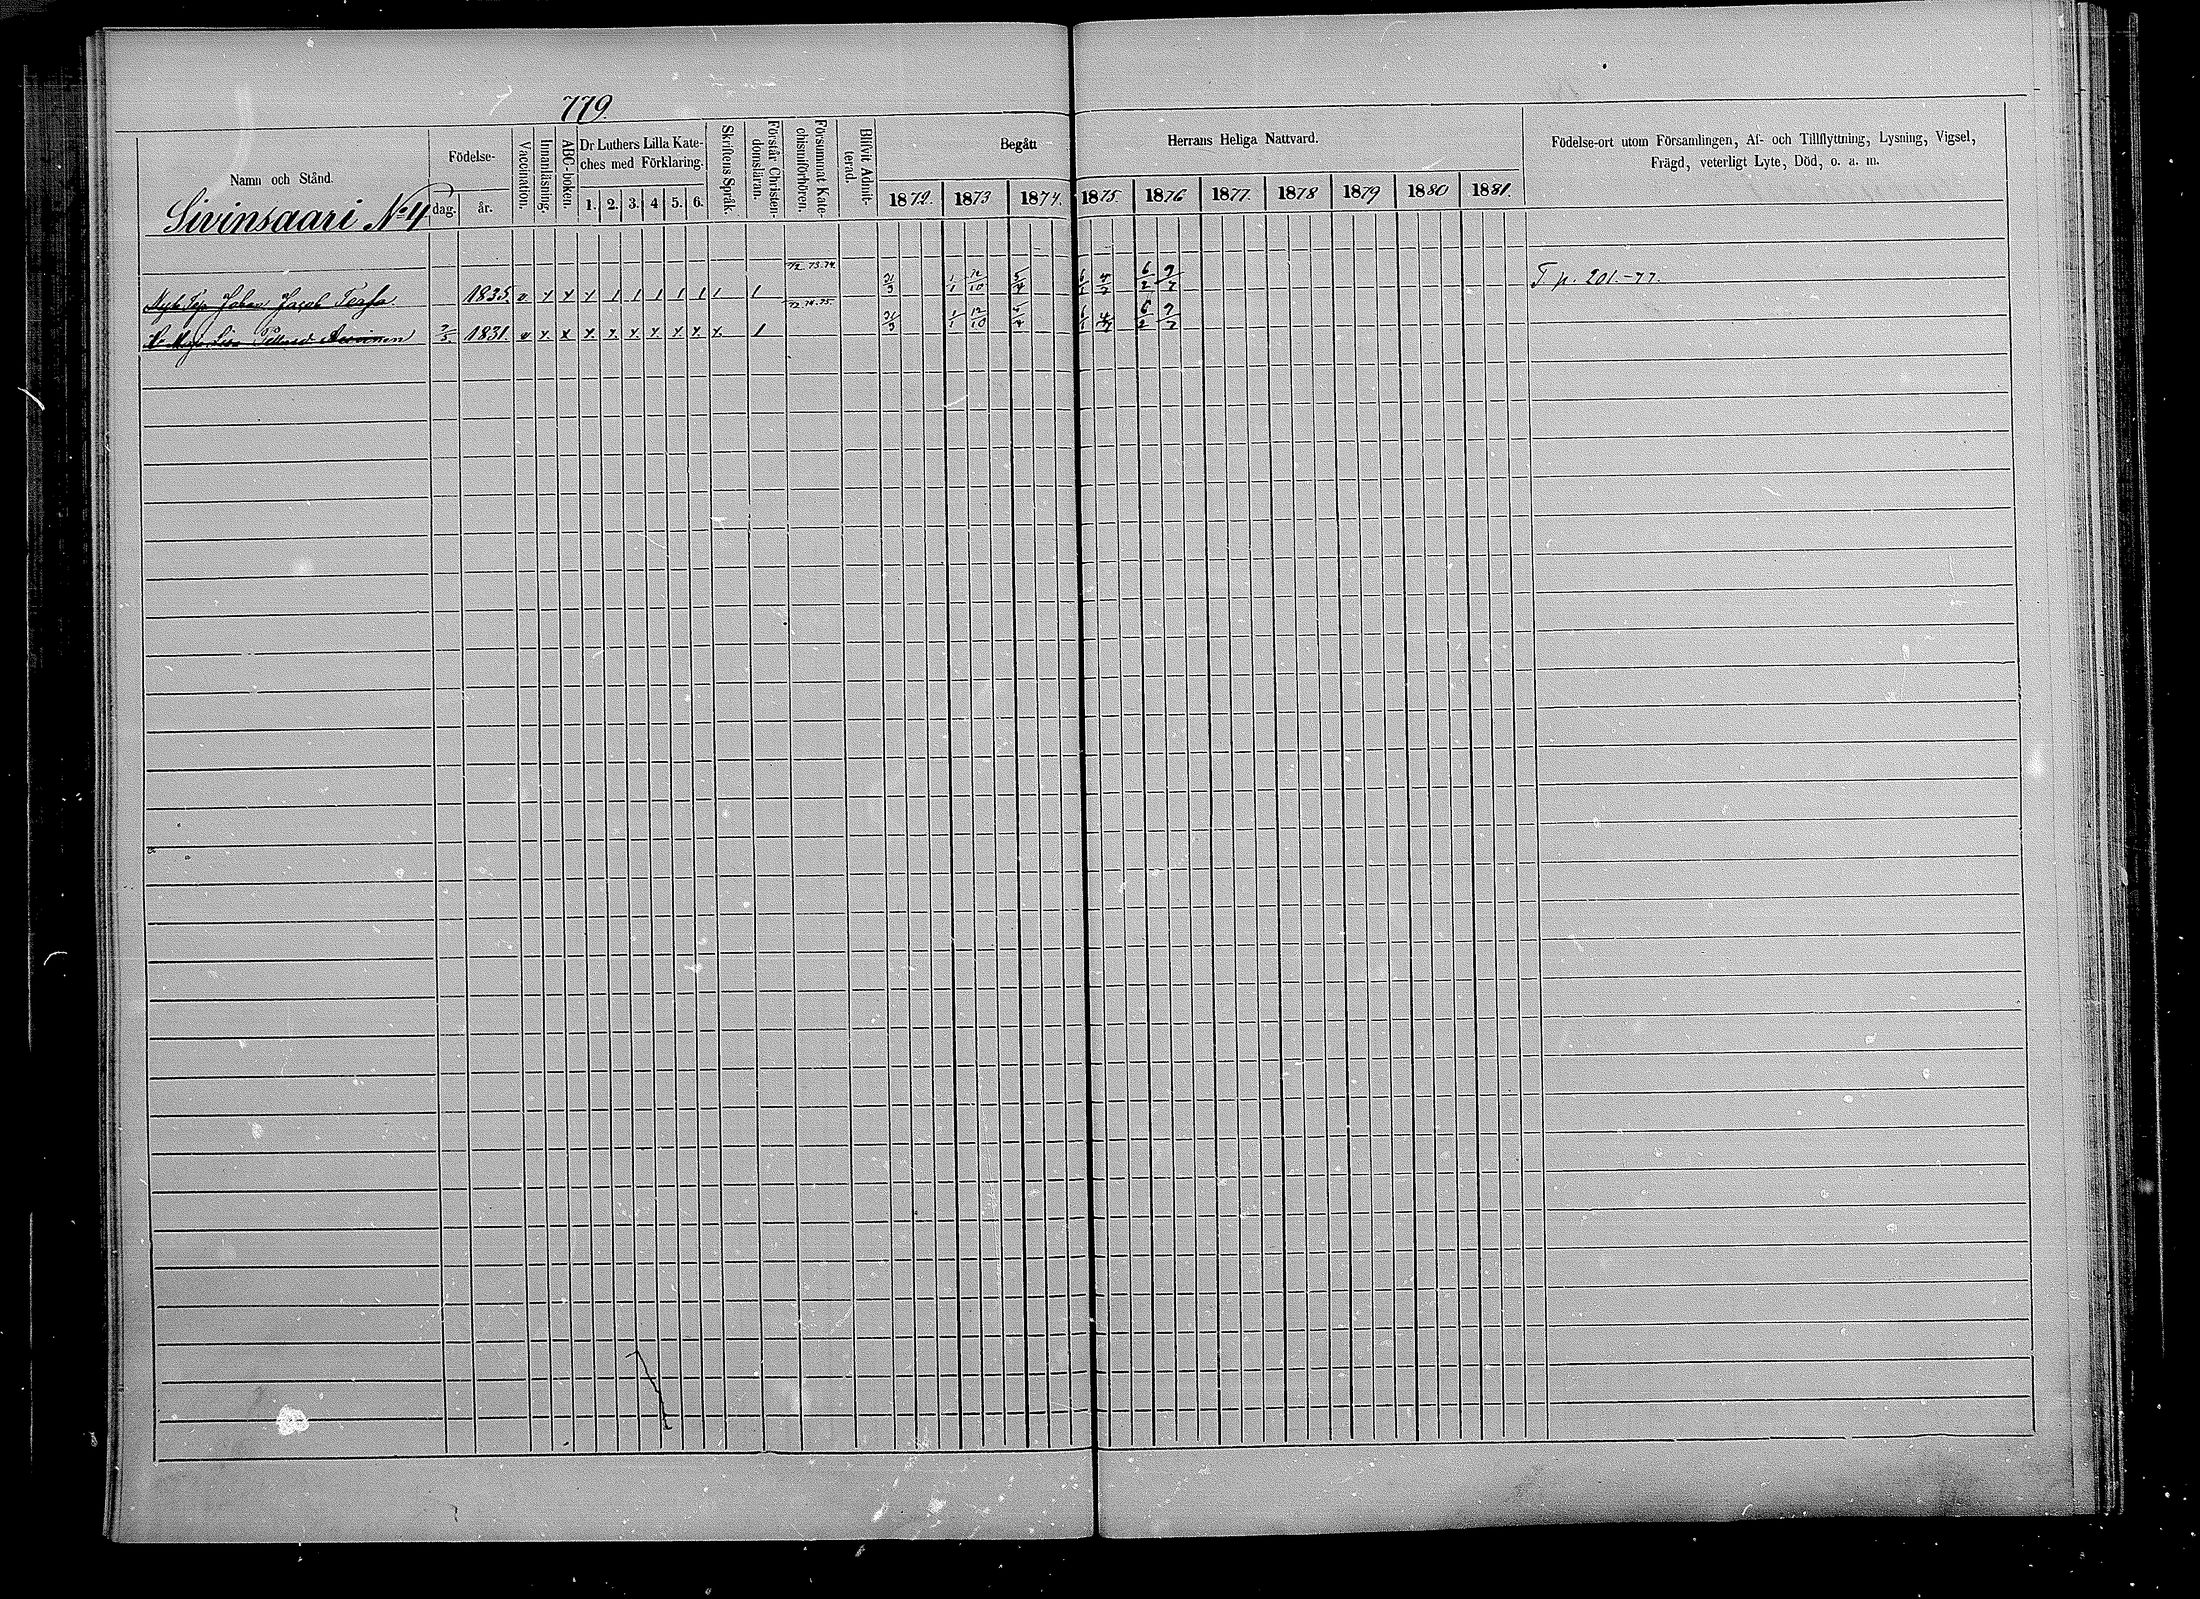 779.
Namn och Stånd.
Födelse-
dag.
år.
Vaccination.
Innanläsning.
ABC-boken.
Dr Luthers Lilla Kate-
ches med Förklaring.
1. 2. 3. 4 5. 6.
Skriftens Språk.
Förstår Christen-
domsläran.
Försummat Kate-
chismiförhören.
Blifvit Admit-
terad.
Begått Herrans Heliga Nattvard.
1872. 1873 1874. 1875. 1876 1877. 1878 1879 1880 1881.
Födelse-ort utom Församlingen, Af- och Tillflyttning, Lysning, Vigsel,
Frägd, veterligt Lyte, Död, o. a. m.
Sivinsaari No 4
72. 73. 74.
Johan Jacob 1835. v. x x x 1 1 1 1 1 1 1 31/3 1/1 12/10 5/4 6/1 6/2 9/7 T p. 201.-77.
72. 74. 75.
Lisa 1831. v x. x x. x. x. x. x. x. x. 1 31/3 1/1 12/10 5/4 6/1 6/2 9/7